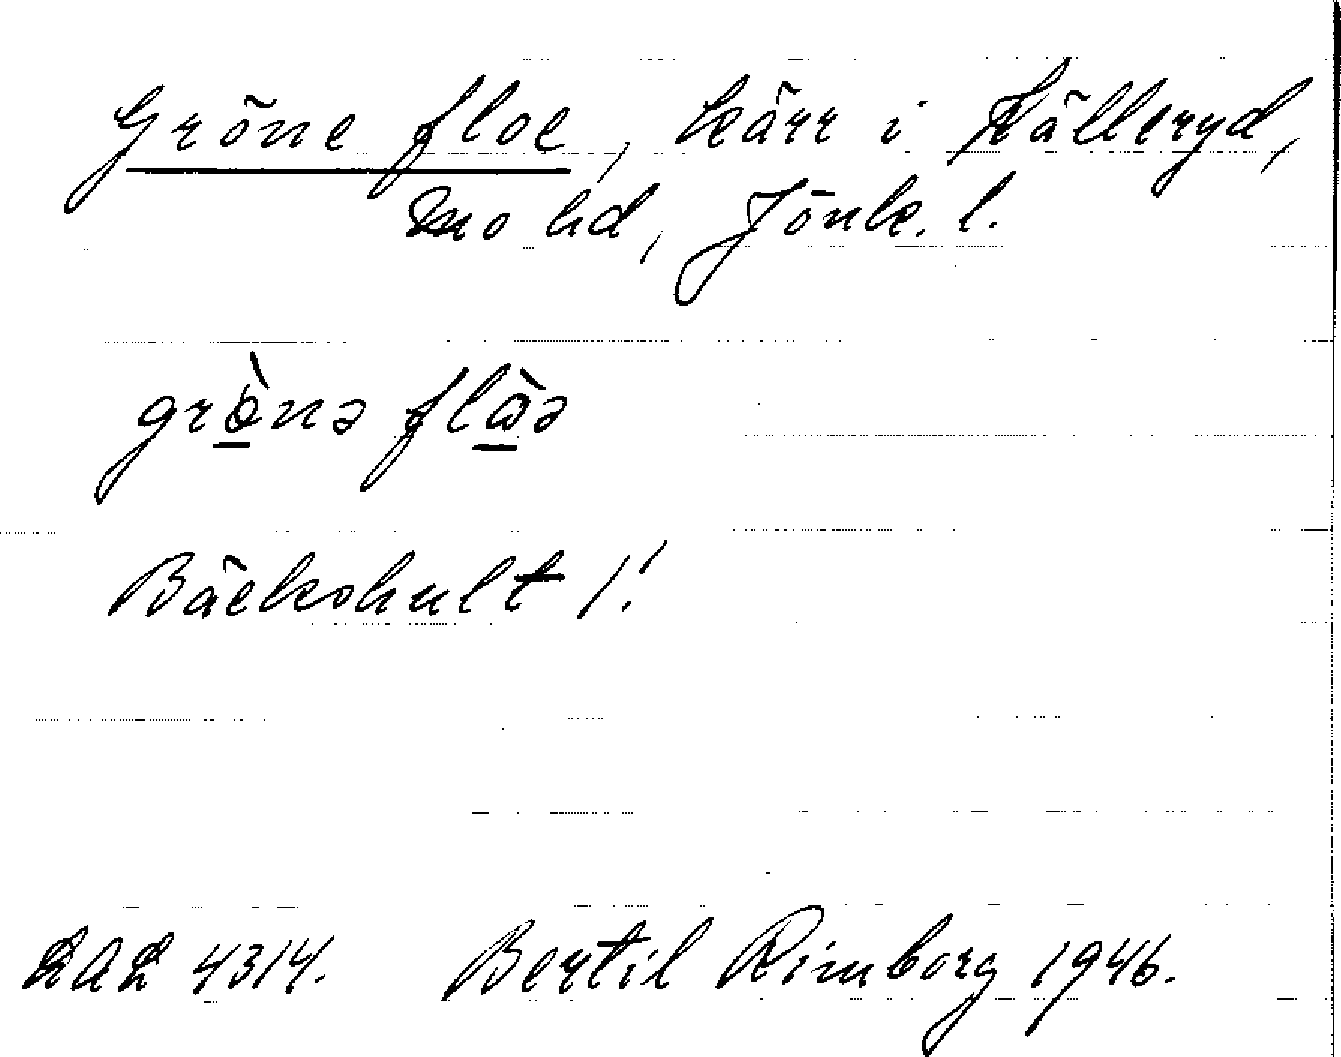 Gröne floe, kärr i Källeryd,
Mo hd, Jönk. l.
grò̱nə flà̱ə
Bäckshult 1!
LAL 4314. Bertil Rimborg 1946.